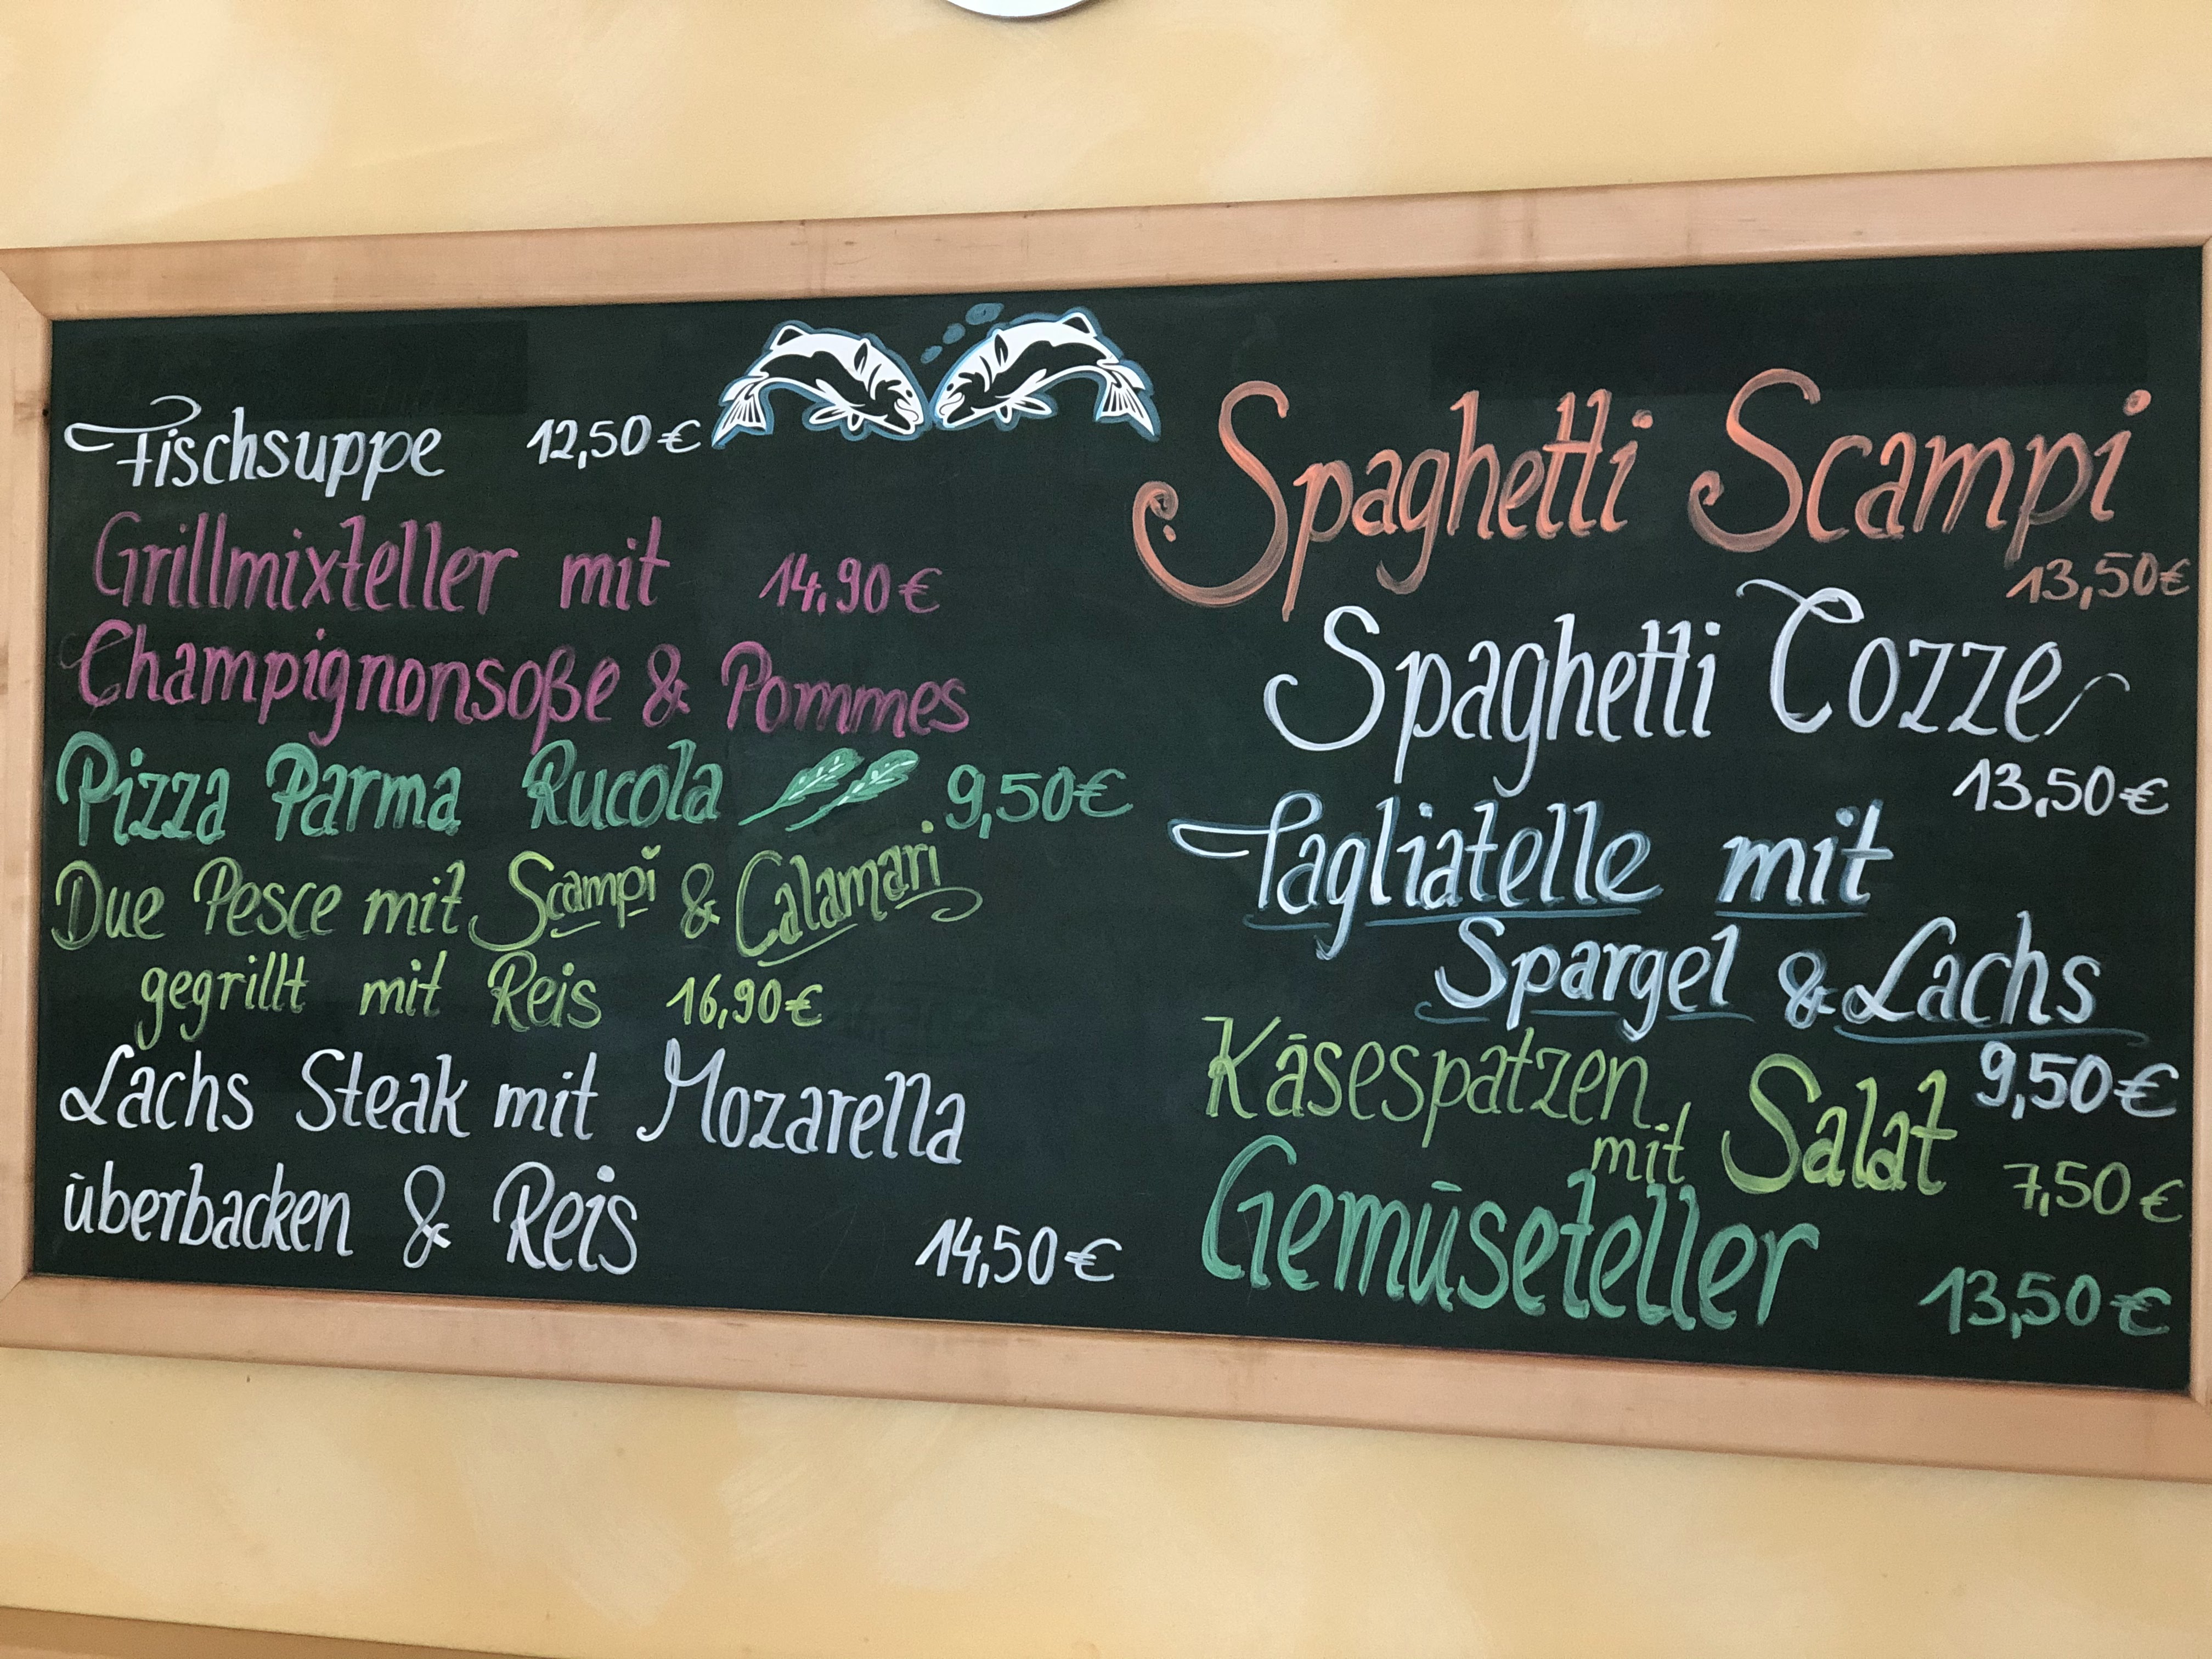 Fischsuppe 12,50 €
Grillmixteller mit 14,90 €
Champignonsoße & Pommes
Pizza Parma Rucola 9,50 €
Due Pesce mit Scampi & Calamari
gegrillt mit Reis 16,90 €
Lachs Steak mit Mozarella
überbacken & Reis 14,50 €
Spaghetti Scampi
13,50 €
Spaghetti Cozze
13,50 €
Tagliatelle mit
Spargel & Lachs
9,50 €
Käsespatzen
mit Salat 7,50 €
Gemüseteller
13,50 €